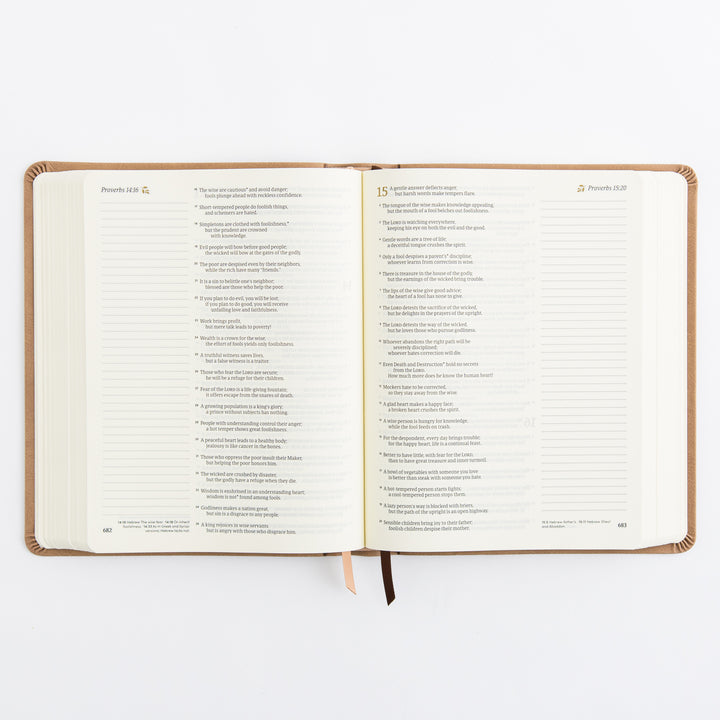 Proverbs 14:16
16 The wise are cautious* and avoid danger;
fools plunge ahead with reckless confidence.
17 Short-tempered people do foolish things,
and schemers are hated.
18 Simpletons are clothed with foolishness,*
but the prudent are crowned
with knowledge.
19 Evil people will bow before good people;
the wicked will bow at the gates of the godly.
20 The poor are despised even by their neighbors,
while the rich have many "friends."
21 It is a sin to belittle one's neighbor;
blessed are those who help the poor.
22 If you plan to do evil, you will be lost;
if you plan to do good, you will receive
unfailing love and faithfulness.
23 Work brings profit,
but mere talk leads to poverty!
24 Wealth is a crown for the wise;
the effort of fools yields only foolishness.
25 A truthful witness saves lives,
but a false witness is a traitor.
26 Those who fear the LORD are secure;
he will be a refuge for their children.
27 Fear of the LORD is a life-giving fountain;
it offers escape from the snares of death.
28 A growing population is a king's glory;
a prince without subjects has nothing.
29 People with understanding control their anger;
a hot temper shows great foolishness.
30 A peaceful heart leads to a healthy body;
jealousy is like cancer in the bones.
31 Those who oppress the poor insult their Maker,
but helping the poor honors him.
32 The wicked are crushed by disaster,
but the godly have a refuge when they die.
33 Wisdom is enshrined in an understanding heart;
wisdom is not* found among fools.
34 Godliness makes a nation great,
but sin is a disgrace to any people.
35 A king rejoices in wise servants
but is angry with those who disgrace him.
682
14:16 Hebrew The wise fear. 14:18 Or inherit
foolishness. 14:33 As in Greek and Syriac
versions; Hebrew lacks not.
Proverbs 15:20
15 A gentle answer deflects anger,
but harsh words make tempers flare.
2 The tongue of the wise makes knowledge appealing,
but the mouth of a fool belches out foolishness.
3 The LORD is watching everywhere,
keeping his eye on both the evil and the good.
4 Gentle words are a tree of life;
a deceitful tongue crushes the spirit.
5 Only a fool despises a parent's* discipline;
whoever learns from correction is wise.
6 There is treasure in the house of the godly,
but the earnings of the wicked bring trouble.
7 The lips of the wise give good advice;
the heart of a fool has none to give.
8 The LORD detests the sacrifice of the wicked,
but he delights in the prayers of the upright.
9 The LORD detests the way of the wicked,
but he loves those who pursue godliness.
10 Whoever abandons the right path will be
severely disciplined;
whoever hates correction will die.
11 Even Death and Destruction* hold no secrets
from the LORD.
How much more does he know the human heart!
12 Mockers hate to be corrected,
so they stay away from the wise.
13 A glad heart makes a happy face;
a broken heart crushes the spirit.
14 A wise person is hungry for knowledge,
while the fool feeds on trash.
15 For the despondent, every day brings trouble;
for the happy heart, life is a continual feast.
16 Better to have little, with fear for the LORD,
than to have great treasure and inner turmoil.
17 A bowl of vegetables with someone you love
is better than steak with someone you hate.
18 A hot-tempered person starts fights;
a cool-tempered person stops them.
19 A lazy person's way is blocked with briers,
but the path of the upright is an open highway.
20 Sensible children bring joy to their father;
foolish children despise their mother.
15:5 Hebrew father's. 15:11 Hebrew Sheol
and Abaddon.
683